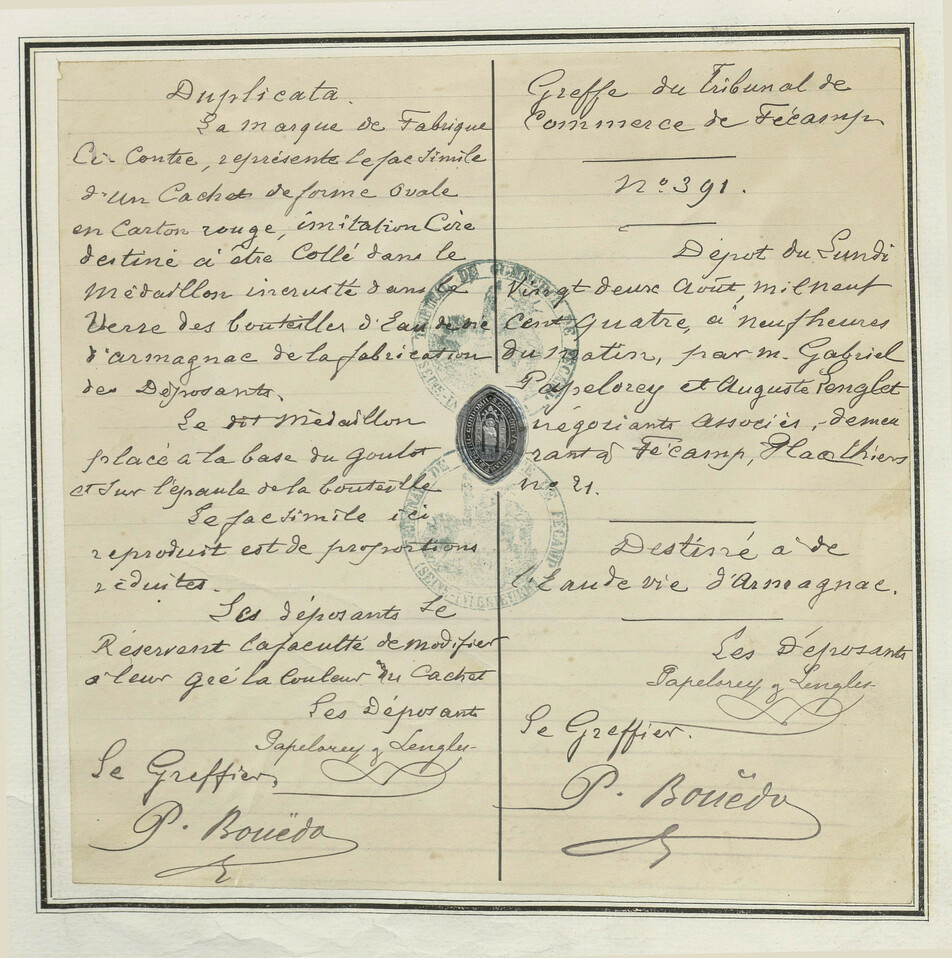 Duplicata.
La marque de Fabrique
Ci-Contre, représente le facsimile
d'un Cachet de forme Ovale
en Carton rouge, imitation Cire
destiné à être Collé dans le
Médaillon incrusté dans le
Verre des bouteilles d'Eau de vie
d'armagnac de la fabrication
des Déposants.
Le dit Médaillon
placé à la base du goulot
et sur l'épaule de la bouteille
Le facsimile ici
reproduit est de proportions
réduites.
Les déposants se
Réservent la faculté de modifier
à leur gré la Couleur du Cachet
Les Déposants
Papelorey & Lenglet
Le Greffier,
P. Bouëdo
Greffe du Tribunal de
Commerce de Fécamp
N° 391.
Dépot du Lundi
Vingt deux Août, mil neuf
Cent quatre, à neuf heures
du matin, par m. Gabriel
Papelorey et Auguste Lenglet
négociants associés, demeu
rant à Fécamp, Place Thiers
n° 21.
Destiné à de
l'Eau de vie d'Armagnac.
Les Déposants
Papelorey & Lenglet
Le Greffier.
P. Bouëdo
TRIBUNAL DE COMMERCE DE FÉCAMP
(SEINE-INFÉRIEURE)
TRIBUNAL DE COMMERCE DE FÉCAMP
(SEINE-INFÉRIEURE)